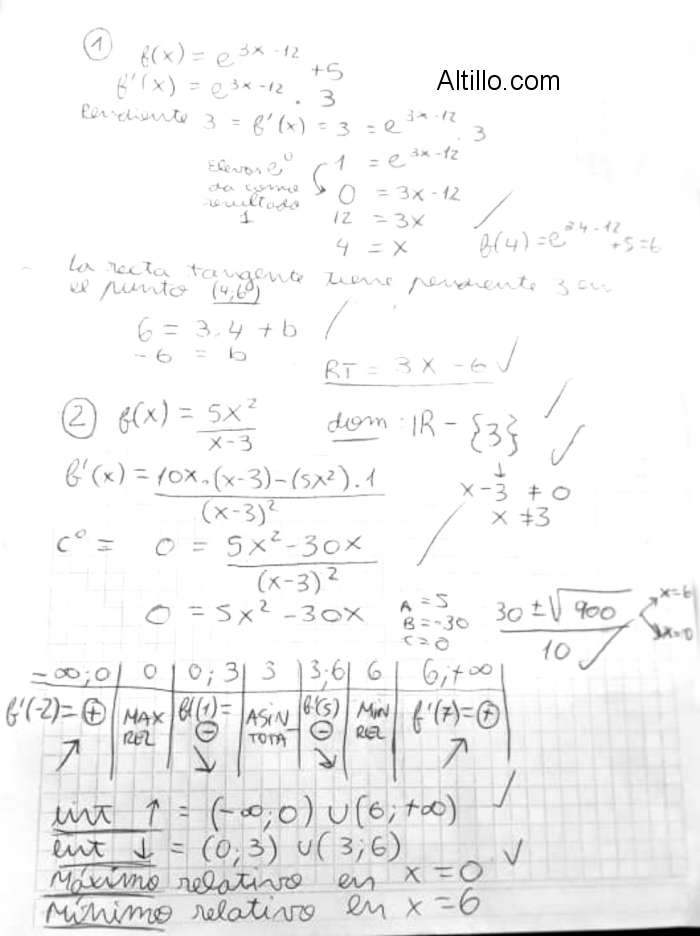 Altillo.com
① f(x) = e^{3x-12} + 5
f'(x) = e^{3x-12} . 3
Pendiente 3 = f'(x) = 3 = e^{3x-12} . 3
Elevar e⁰ da como resultado 1
1 = e^{3x-12}
0 = 3x-12
12 = 3x
4 = x
f(4) = e^{34-12} +5 = 6
La recta tangente tiene pendiente 3 en
el punto (4;6)
6 = 3.4 + b
-6 = b
RT = 3x - 6 ✓
② f(x) = 5x² / x-3
dom : IR - {3}
x-3 ≠ 0
x ≠ 3
f'(x) = 10x.(x-3)-(5x²).1 / (x-3)²
C⁰ = 0 = 5x²-30x / (x-3)²
0 = 5x² -30x
A = 5
B = -30
C = 0
30 ± √900 / 10
x=6
x=0
-∞;0 | 0 | 0;3 | 3 | 3;6 | 6 | 6;+∞
f'(-2)= ⊕ ↗ | MAX REL | f'(1)= ⊖ ↘ | ASINTOTA | f'(5) ⊖ ↘ | MIN REL | f'(7)= ⊕ ↗
int ↑ = (-∞;0) ∪ (6;+∞)
int ↓ = (0;3) ∪ (3;6)
Máximo relativo en x=0
Mínimo relativo en x=6